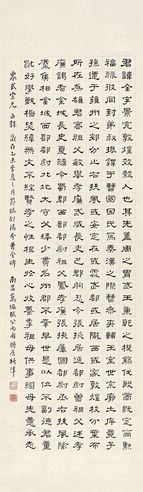 君諱全字景完敦煌效穀人也其先蓋周之冑武王秉乾之機翦伐殷商既定爾勳
福祿攸同封弟叔振鐸于曹國因氏焉秦漢之際曹參夾輔王室世宗廓土斥竟子
孫遷于雍州之郊分止右扶風或在安定或處武都或居隴西或家敦煌枝分葉布
所在為雄君高祖父敏舉孝廉武威長史巴郡朐忍令張掖居延都尉曾祖父述孝
廉謁者金城長史夏陽令蜀郡西部都尉祖父鳳孝廉張掖屬國都尉丞右扶風隃
麋侯相金城西部都尉北地太守父琫少貫名州郡不幸早世是以位不副德君童
齔好學甄極毖緯無文不綜賢孝之性根生於心收養季祖母供事繼母先意承志
宗兄正隸 歲在乙未 漢曹全碑